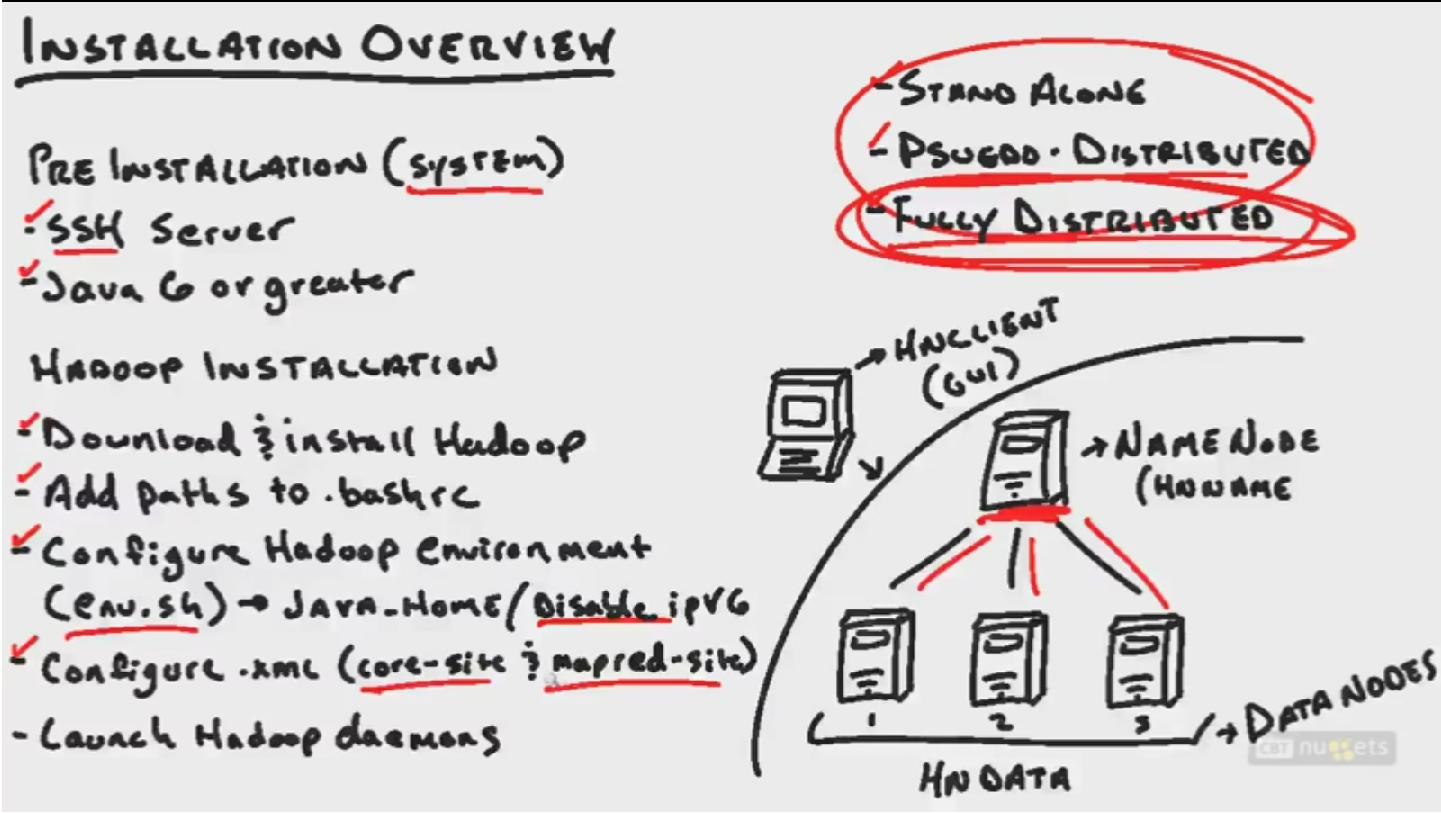 INSTALLATION OVERVIEW
PRE INSTALLATION (SYSTEM)
- SSH Server
- Java 6 or greater
HADOOP INSTALLATION
- Download & install Hadoop
- Add paths to .bashrc
- Configure Hadoop environment
(env.sh) → JAVA_HOME/Disable ipV6
- Configure .xml (core-site & mapred-site)
- Launch Hadoop daemons
- STAND ALONE
- PSUEDO-DISTRIBUTED
- FULLY DISTRIBUTED
→ HNCLIENT
(GUI)
→ NAME NODE
(HNNAME
1 2 3
→ DATA NODES
HNDATA
CBT nuggets